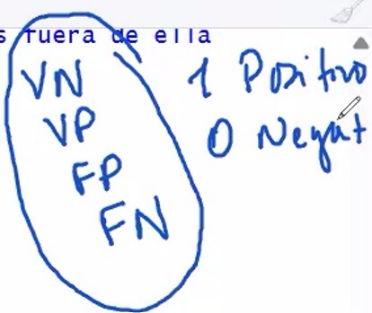 s fuera de ella
VN
VP
FP
FN
1 Positivo
0 Negat